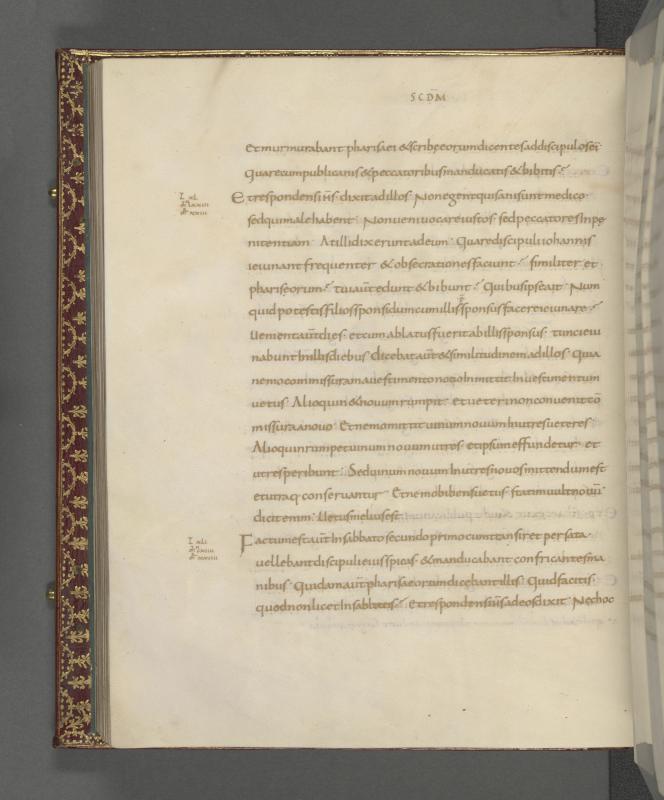 SCDM̄
Et murmurabant pharisaei & scribę eorum dicentes ad discipulos ei᾽
Quare cum publicanis & peccatoribus manducatis & bibitis
Et respondens iħs dixit ad illos Non egent qui sani sunt medico
sed qui male habent Non veni vocare iustos sed peccatores in pe
nitentiam At illi dixerunt ad eum Quare discipuli iohannis
ieiunant frequenter & obsecrationes faciunt similiter et
phariseorum tui aūt edunt & bibunt Quibus ipse ait Num
quid potestis filios sponsi dum cum illis sponsus facere ieiunare
Uenient aūt dies et cum ablatus fuerit ab illis sponsus tunc ieiu
nabunt In illis diebus Dicebat aūt & similitudinem ad illos Quia
nemo commissuram a uestimento nouo Inmittit In uestimentum
uetus Alioquin & nouum rumpit et ueteri non conuenit cō
missura a nouo Et nemo mittit uinum nouum In utres ueteres
Alioquin rumpet uinum nouum utres et ipsum effundetur et
utres peribunt Sed uinum nouum In utres nouos mittendum est
et utraq conseruantur Et nemo bibens uetus statim uult nouū
dicit enim Uetus melius est
Factum est aūt In sabbato secundo primo cum transiret per sata
uellebant discipuli eius spicas & manducabant confricantes ma
nibus Quidam aūt pharisaeorum dicebant illis Quid facitis
quod non licet In sabbatis Et respondens iħs ad eos dixit Nec hoc